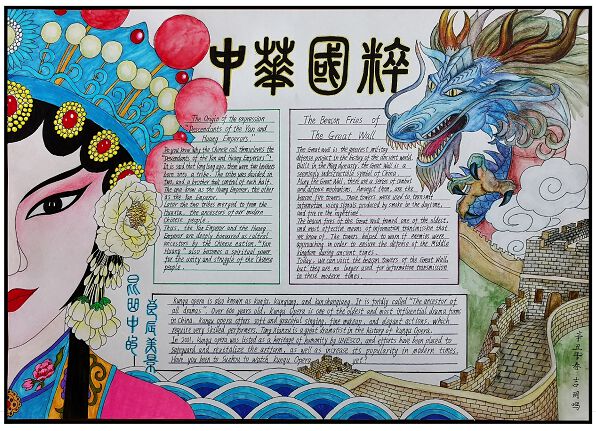 中華國粹
The Origin of the expression
"Descendants of the Yan and
Huang Emperors".
Do you know why the Chinese call themselves the
"Descendants of the Yan and Huang Emperors"?
It is said that long long ago, there were two brothers
born into a tribe. The tribe was divided in
two, and a brother took control of each half.
One was known as the Huang Emperor, the other
as the Yan Emperor.
Later the two tribes merged to form the
Huaxia, the ancestors of our modern
Chinese people.
Thus, the Yan Emperor and the Huang
Emperor are deeply honoured as cultural
ancestors by the Chinese nation. "Yan
Huang" also becomes a spiritual power
for the unity and struggle of the Chinese
people.
The Beacon Fries of
The Great Wall
The Great wall is the greatest military
defense project in the history of the ancient world.
Built in the Ming dynasty, the Great Wall is a
seemingly indestructible symbol of China.
Along the Great Wall, there are a series of combat
and defense mechanisms. Amongst them, are the
beacon fire towers. Those towers were used to transmit
information using signals produced by smoke in the daytime,
and fire in the nighttime.
The beacon fires of the Great Wall formed one of the oldest,
and most effective means of information transmission that
we know of. The towers helped to warn if enemies were
approaching in order to ensure the defense of the Middle
Kingdom during ancient times.
Today, we can visit the beacon towers of the Great Wall,
but they are no longer used for information transmission
in these modern times.
良辰美景
Kunqu opera is also known as kunju, kunqiang, and kunshanqiang. It is fondly called "The ancestor of
all dramas". Over 600 years old, Kunqu Opera is one of the oldest and most influential drama forms
in China. Kunqu opera offers soft and graceful singing, fine makeup, and elegant actions, which
require very skilled performers. Tang Xianzu is a great dramatist in the history of kunqu Opera.
In 2001, kunqu opera was listed as a heritage of humanity by UNESCO, and efforts have been placed to
safeguard and revitalize the artform, as well as increase its popularity in modern times.
Have you been to Suzhou to watch Kunqu Opera yet?
年春·古月鸣